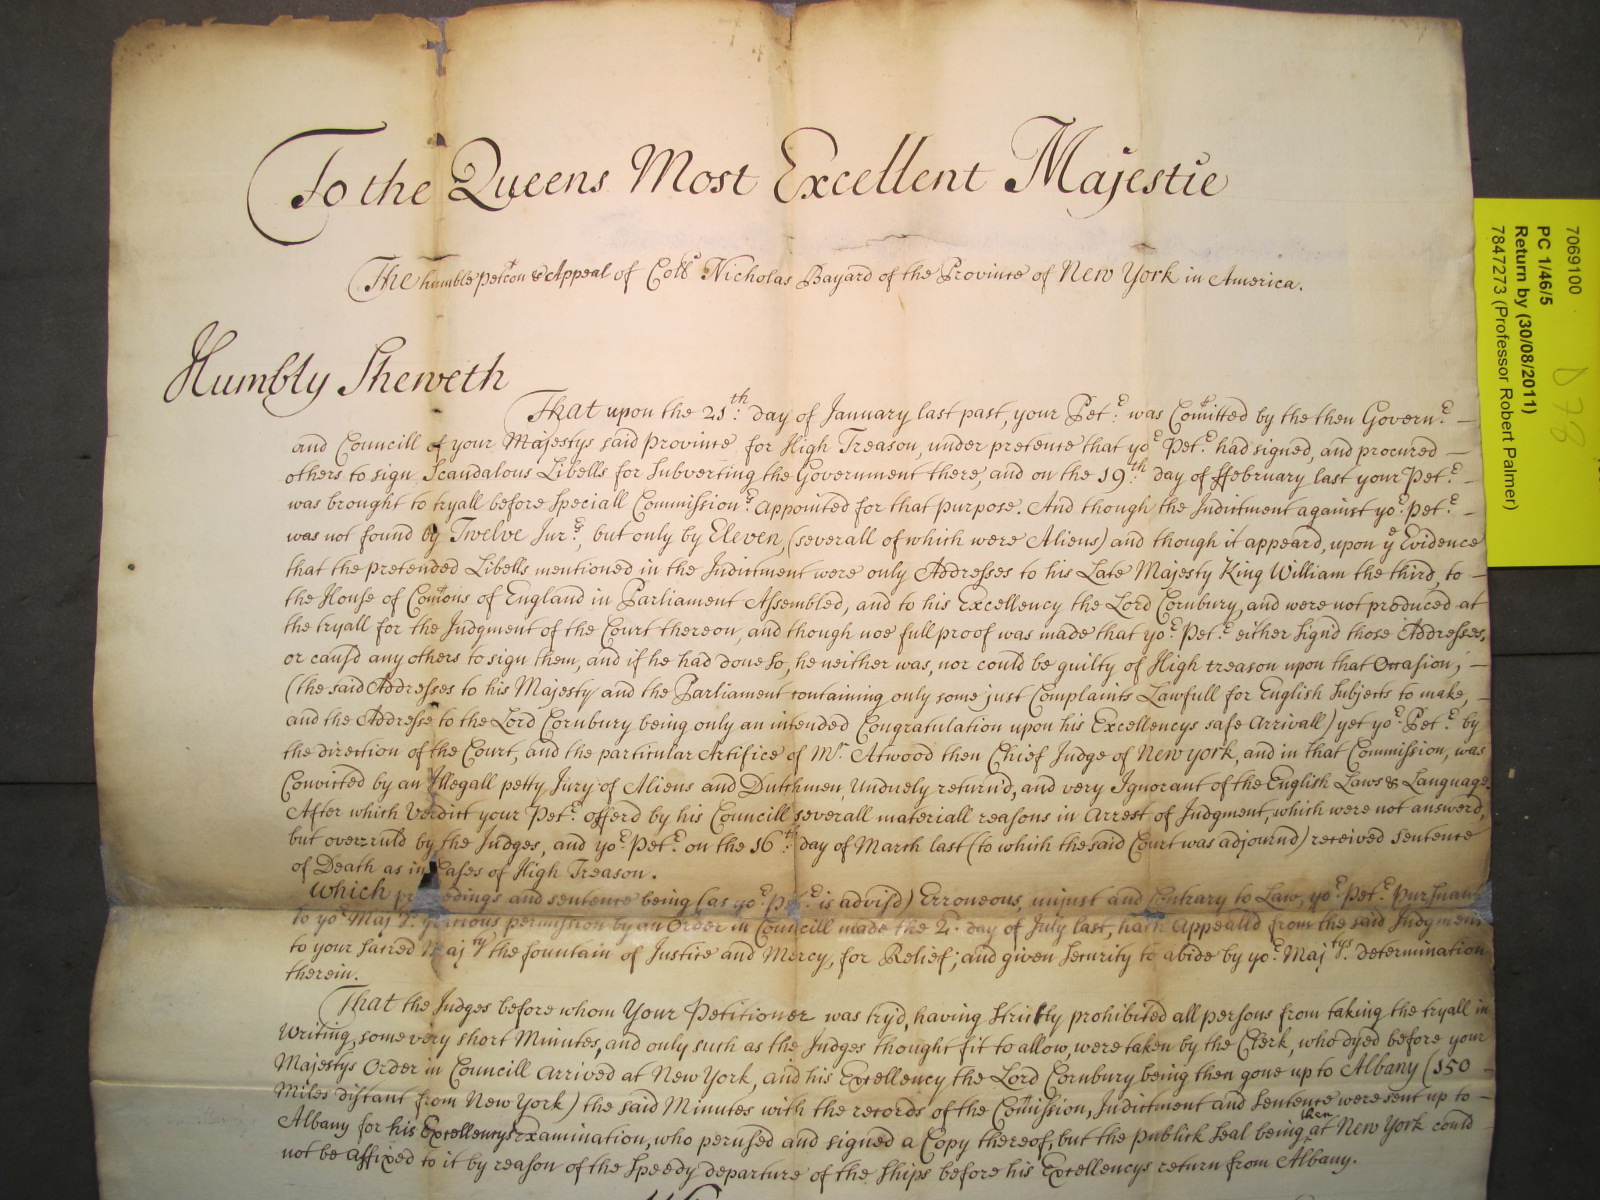 To the Queens Most Excellent Majestie
The humble Peticon & Appeal of Coll.o Nicholas Bayard of the Province of New York in America.
Humbly Sheweth
That upon the 21th: day of January last past, your Pet.r was Comitted by the then Govern.r
and Councill of your Majestys said Province for High Treason, under pretence that yo.r Pet.r had signed, and procured
others to sign Scandalous Libells for Subverting the Government there, and on the 19th: day of ffebruary last your Pet.r
was brought to tryall before Speciall Commission.rs Appointed for that purpose. And though the Indictment against yo.r Pet.r
was not found by Twelve Jur.rs, but only by Eleven, (severall of which were Aliens) and though it appeard, upon ye Evidence
that the pretended Libells mentioned in the Indictment were only Addresses to his Late Majesty King William the third, to
the House of Comons of England in Parliament Assembled, and to his Excellency the Lord Cornbury, and were not produced at
the tryall for the Judgment of the Court thereon, and though noe full proof was made that yo.r Pet.r either Sign'd those Addresses,
or caus'd any others to sign them, and if he had done so, he neither was, nor could be guilty of High treason upon that Occasion;
(the said Addresses to his Majesty and the Parliament containing only some just Complaints Lawfull for English Subjects to make,
and the Addresse to the Lord Cornbury being only an intended Congratulation upon his Excellencys safe Arrivall) yet yo.r Pet.r by
the direction of the Court, and the particular Artifice of Mr. Atwood then Chief Judge of New york, and in that Commission, was
Convicted by an Illegall petty Jury of Aliens and Dutchmen, Unduely return'd, and very Ignorant of the English Laws & Language.
After which Verdict your Pet.r offerd by his Councill severall materiall reasons in Arrest of Judgment, which were not answerd,
but overruld by the Judges, and yo.r Pet.r on the 16th: day of March last (to which the said Court was adjournd) received sentence
of Death as in Cases of High Treason.
Which proceedings and sentence being (as yo.r Pet.r is advis'd) Erroneous, unjust and Contrary to Law, yo.r Pet.r Pursuant
to yo.r Maj.ts gracious permission by an Order in Councill made the 2. day of July last, hath Appealed from the said Judgment
to your Sacred Maj.ty the fountain of Justice and Mercy, for Relief; and given Security to abide by yo.r Maj.tys determination
therein.
That the Judges before whom Your Petitioner was try'd, having Strictly prohibited all persons from taking the tryall in
Writing, some very short Minutes, and only such as the Judges thought fit to allow, were taken by the Clerk, who dyed before your
Majestys Order in Councill arrived at New York, and his Excellency the Lord Cornbury being then gone up to Albany (150
Miles distant from New York) the said Minutes with the records of the Comission, Indictment and Sentence were sent up to
Albany for his Excellencys Examination, who perused and signed a Copy thereof, but the publick Seal being then at New York could
not be affixed to it by reason of the Speedy departure of the Ships before his Excellencys return from Albany.
7069100
PC 1/46/5
Return by (30/08/2011)
7847273 (Professor Robert Palmer)